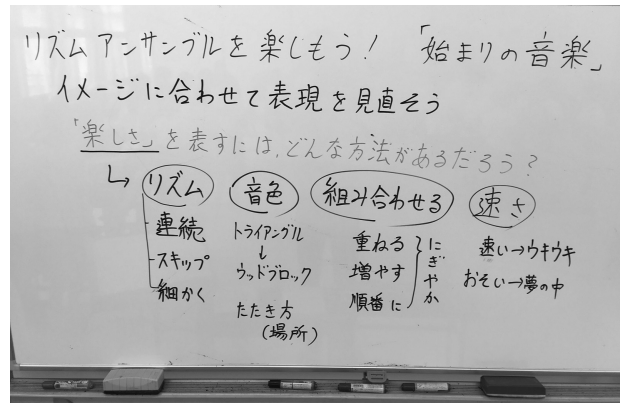 リズムアンサンブルを楽しもう! 「始まりの音楽」
イメージに合わせて表現を見直そう
「楽しさ」を表すには、どんな方法があるだろう?
↳ リズム 音色 組み合わせる 速さ
連続
スキップ
細かく
トライアングル
↓
ウッドブロック
たたき方
(場所)
重ねる
増やす
順番に
にぎやか
速い→ウキウキ
おそい→夢の中